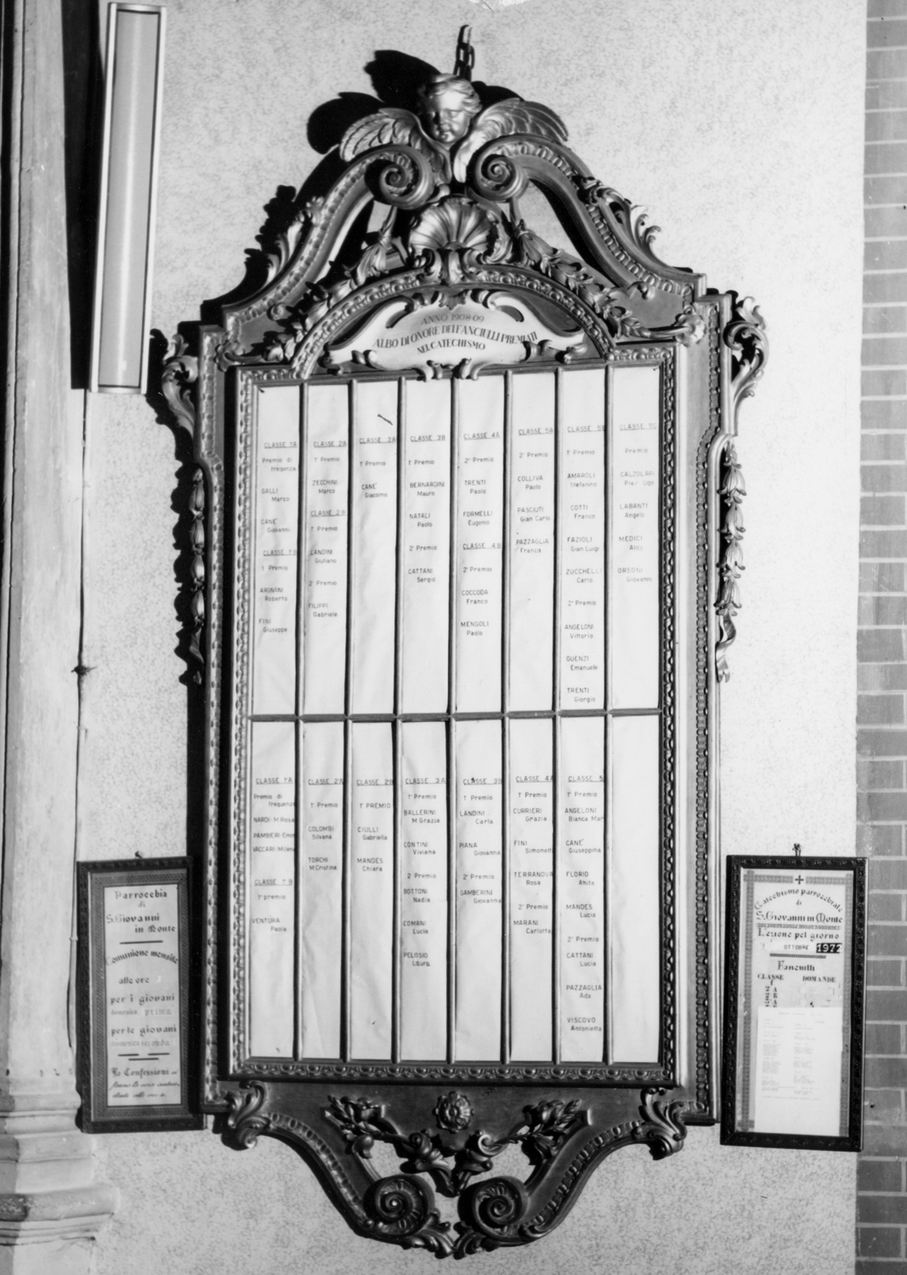 ANNO 1908-09
ALBO DI ONORE DEI FANCIULLI PREMIATI
NEL CATECHISMO
CLASSE 1A
Premio di
frequenza
GALLI
Marco
CANE'
Giovanni
CLASSE 1B
1° Premio
ARGNANI
Roberto
FINI
Giuseppe
CLASSE 2A
1° Premio
ZECCHINI
Marco
CLASSE 2B
1° Premio
LANDINI
Giuliano
2° Premio
FILIPPI
Gabriele
CLASSE 3A
1° Premio
CANE'
Giacomo
CLASSE 3B
1° Premio
BERNARDINI
Mauro
NATALI
Paolo
2° Premio
CATTANI
Sergio
CLASSE 4A
2° Premio
TRENTI
Paolo
FORMELLI
Eugenio
CLASSE 4B
2° Premio
COCCODA
Franco
MENGOLI
Paolo
CLASSE 5A
2° Premio
COLLIVA
Paolo
PASCIUTI
Gian Carlo
PAZZAGLIA
Franco
CLASSE 5B
1° Premio
AMAROLI
Stefanino
COTTI
Franco
FAZIOLI
Gian Luigi
ZUCCHELLI
Carlo
2° Premio
ANGELONI
Vittorio
GUENZI
Emanuele
TRENTI
Giorgio
Premio
CALZOLARI
LABANTI
Angelo
MEDICI
Giovanni
CLASSE 1A
Premio di
frequenza
NARDI M.Rosa
PAMBIERI
VACCARI Milena
CLASSE 1B
1° premio
VENTURA
Paola
CLASSE 2A
1° Premio
COLOMBI
Silvana
TORCHI
M.Cristina
CLASSE 2B
1° PREMIO
CIULLI
Gabriella
MANDES
Chiara
CLASSE 3A
1° Premio
BALLERINI
M.Grazia
CONTINI
Viviana
2° Premio
BOTTONI
Nadia
COMANI
Lucia
PELOSIO
Laura
CLASSE 3B
1° Premio
LANDINI
Carla
PIANA
Giovanna
2° Premio
GAMBERINI
Giovanna
CLASSE 4A
1° Premio
CURRIERI
Grazia
FINI
FERRANOVA
Rosa
2° Premio
MARANI
Carlotta
CLASSE 5
1° Premio
ANGELONI
Bianca Mar
CANE'
Giuseppina
FLORIO
Anita
MANDES
Lucia
2° Premio
CATTANI
Lucia
PAZZAGLIA
Ada
VISCOVO
Antonietta
Parrocchia
di
S.Giovanni
in Monte
Comunione mensile
alle ore
per i giovani
per le giovani
Le Confessioni
Catechismo parrocchiale
di
S.Giovanni in Monte
Lezione pel giorno
OTTOBRE 1977
Fanciulli
CLASSE DOMANDE